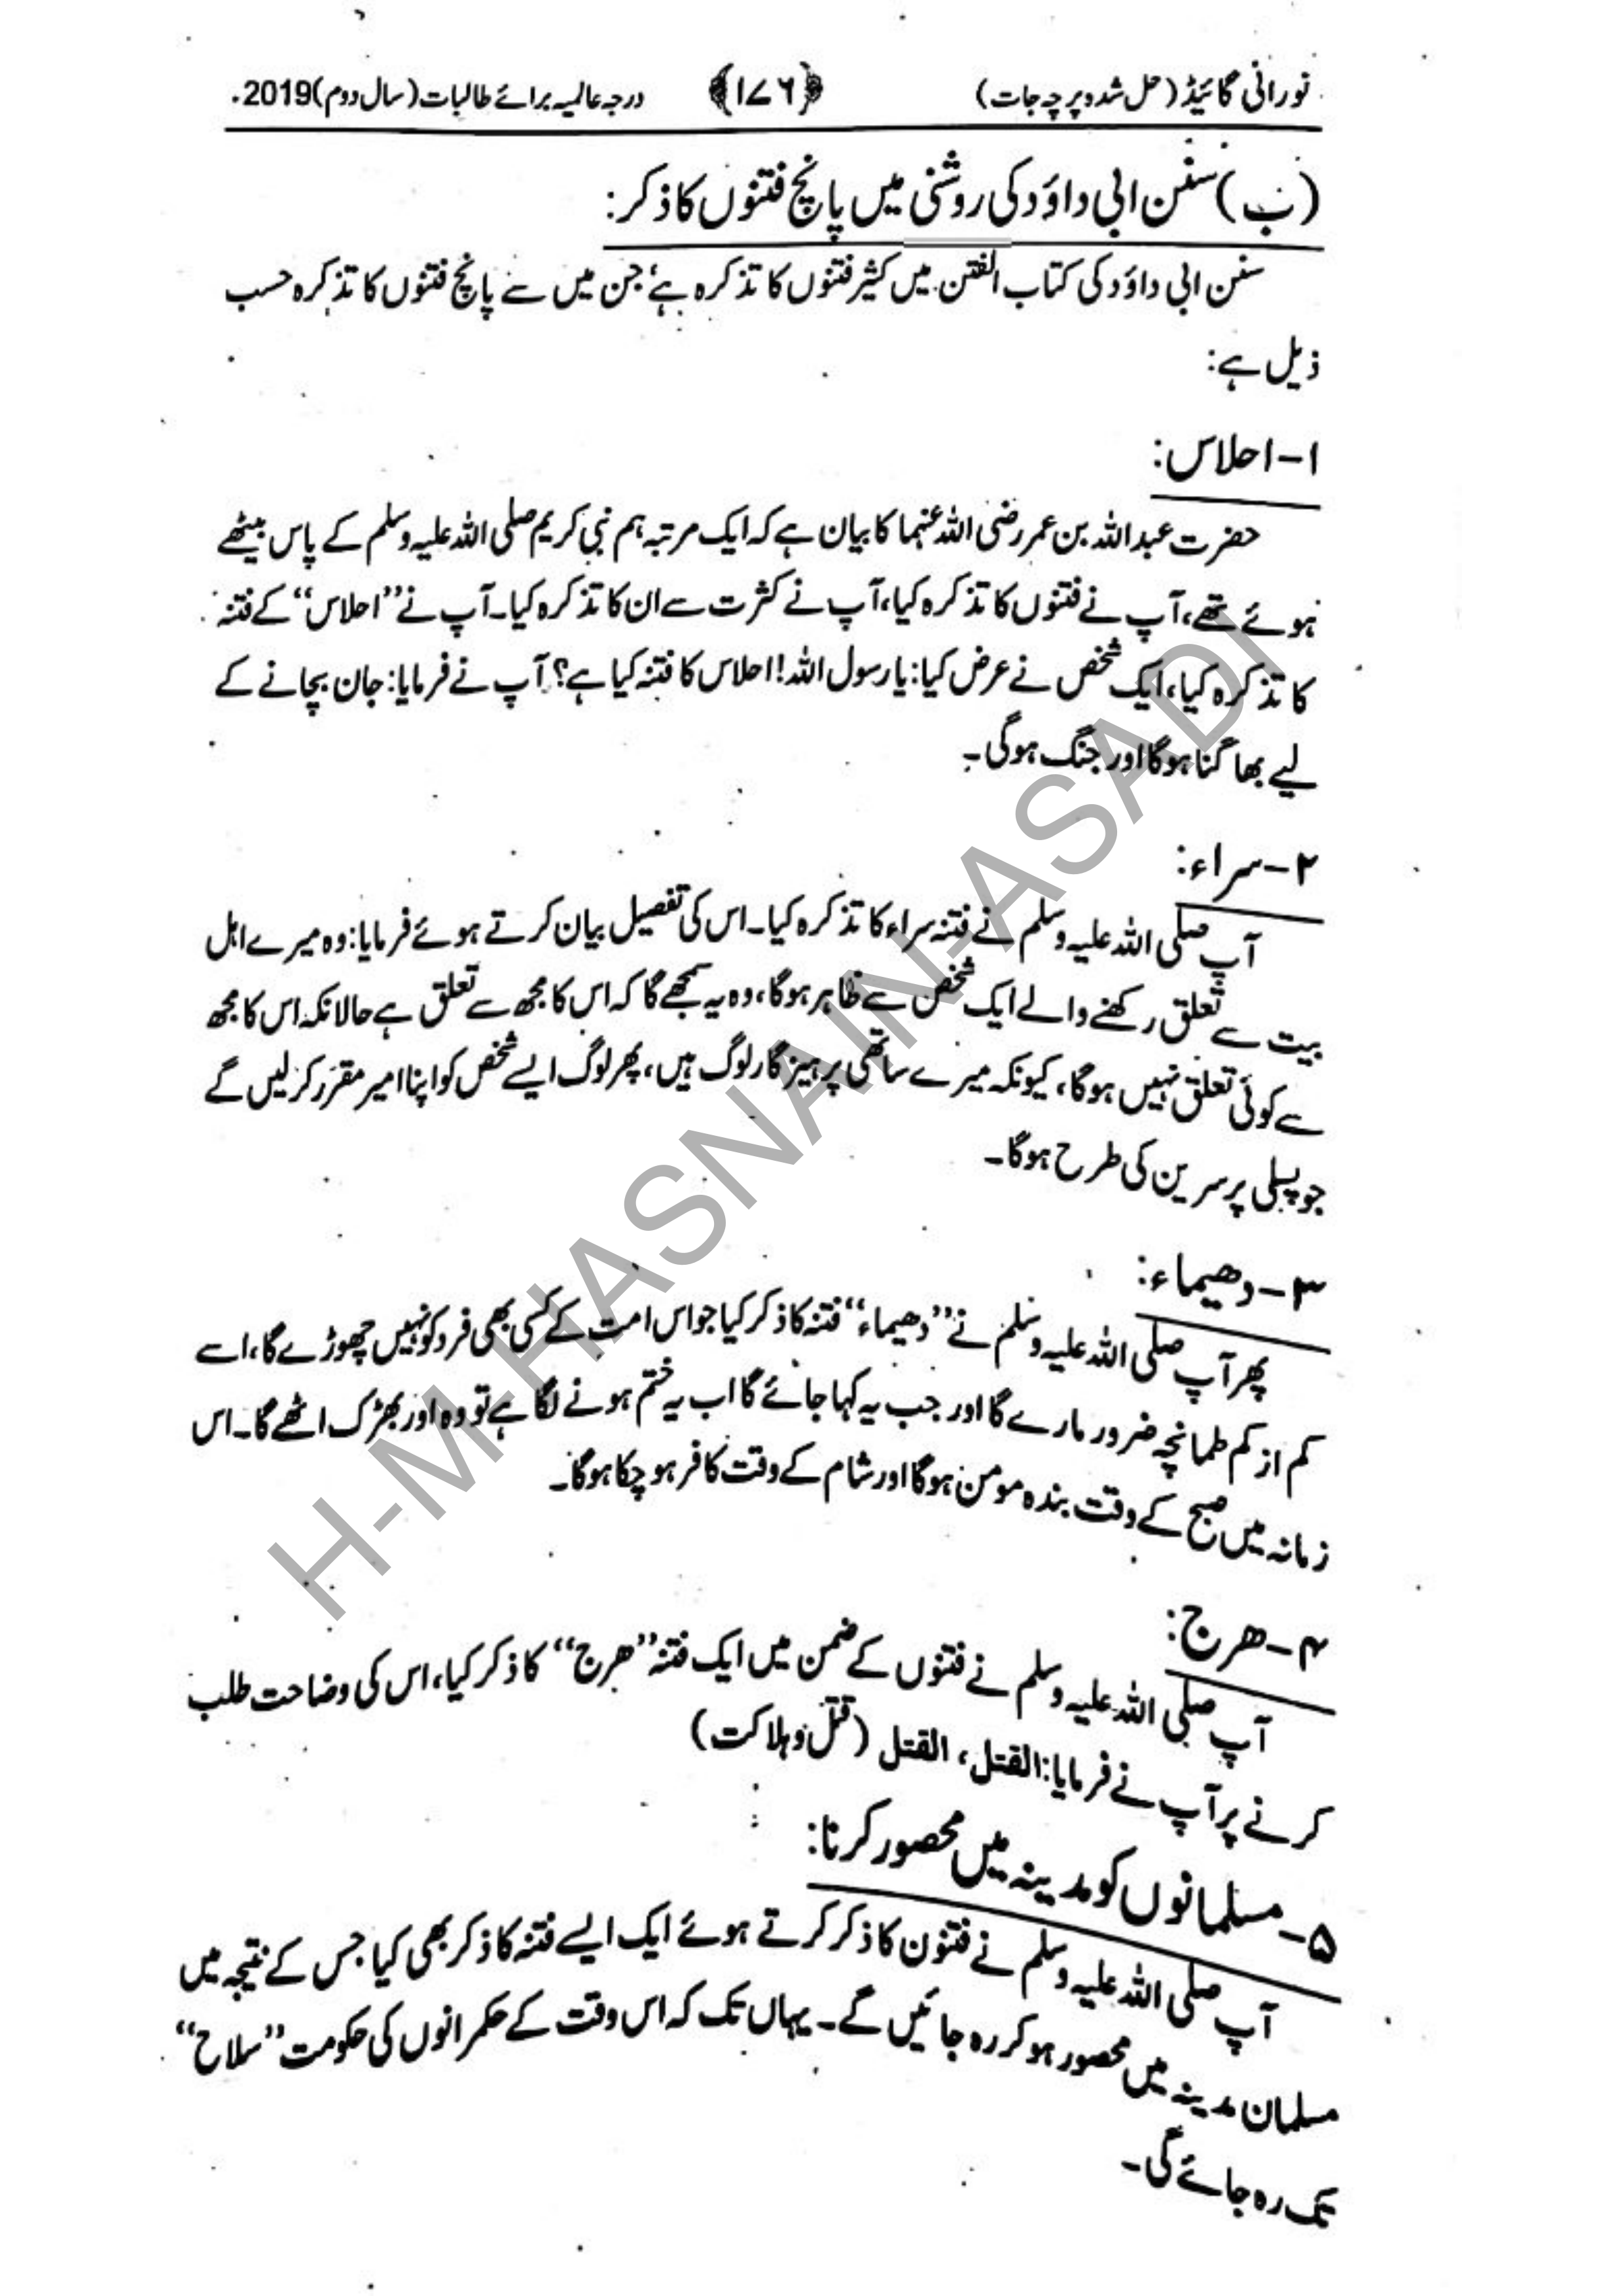 نورانی گائیڈ (حل شدہ پرچہ جات)
﴿۱۷۶﴾
درجہ عالمیہ برائے طالبات (سال دوم) 2019.
(ب) سنن ابی داؤد کی روشنی میں پانچ فتنوں کا ذکر:
سنن ابی داؤد کی کتاب الفتن میں کثیر فتنوں کا تذکرہ ہے، جن میں سے پانچ فتنوں کا تذکرہ حسب
ذیل ہے:
۱-احلاس:
حضرت عبداللہ بن عمر رضی اللہ عنہما کا بیان ہے کہ ایک مرتبہ ہم نبی کریم صلی اللہ علیہ وسلم کے پاس بیٹھے
ہوئے تھے، آپ نے فتنوں کا تذکرہ کیا، آپ نے کثرت سے ان کا تذکرہ کیا۔ آپ نے ’’احلاس‘‘ کے فتنہ
کا تذکرہ کیا، ایک شخص نے عرض کیا: یارسول اللہ! احلاس کا فتنہ کیا ہے؟ آپ نے فرمایا: جان بچانے کے
لیے بھاگنا ہوگا اور جنگ ہوگی۔
۲-سراء:
آپ صلی اللہ علیہ وسلم نے فتنہ سراء کا تذکرہ کیا۔ اس کی تفصیل بیان کرتے ہوئے فرمایا: وہ میرے اہل
بیت سے تعلق رکھنے والے ایک شخص سے ظاہر ہوگا، وہ یہ سمجھے گا کہ اس کا مجھ سے تعلق ہے حالانکہ اس کا مجھ
سے کوئی تعلق نہیں ہوگا، کیونکہ میرے ساتھی پرہیزگار لوگ ہیں، پھر لوگ ایسے شخص کو اپنا امیر مقرر کرلیں گے
جو پسلی پر سرین کی طرح ہوگا۔
۳-دھیماء:
پھر آپ صلی اللہ علیہ وسلم نے ’’دھیماء‘‘ فتنہ کا ذکر کیا جو اس امت کے کسی بھی فرد کو نہیں چھوڑے گا، اسے
کم از کم طمانچہ ضرور مارے گا اور جب یہ کہا جائے گا اب یہ ختم ہونے لگا ہے تو وہ اور بھڑک اٹھے گا۔ اس
زمانہ میں صبح کے وقت بندہ مومن ہوگا اور شام کے وقت کافر ہو چکا ہوگا۔
۴-ھرج:
آپ صلی اللہ علیہ وسلم نے فتنوں کے ضمن میں ایک فتنہ ’’ھرج‘‘ کا ذکر کیا، اس کی وضاحت طلب
کرنے پر آپ نے فرمایا: القتل، القتل (قتل و ہلاکت)
۵-مسلمانوں کو مدینہ میں محصور کرنا:
آپ صلی اللہ علیہ وسلم نے فتنون کا ذکر کرتے ہوئے ایک ایسے فتنہ کا ذکر بھی کیا جس کے نتیجہ میں
مسلمان مدینہ میں محصور ہو کر رہ جائیں گے۔ یہاں تک کہ اس وقت کے حکمرانوں کی حکومت ’’سلاح‘‘
تک رہ جائے گی۔
H-M-HASNAIN-ASADI